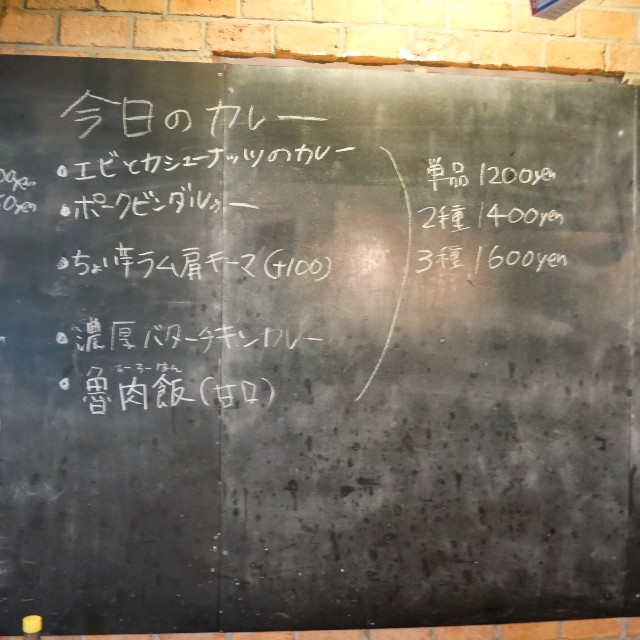 今日のカレー
・エビとカシューナッツのカレー
・ポークビンダルゥー
・ちょい辛ラム肩キーマ(+100)
・濃厚バターチキンカレー
るーろーはん
・魯肉飯(甘口)
単品 1200yen
2種 1400yen
3種 1600yen